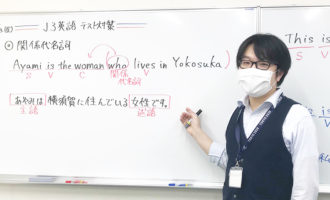 J3英語 テスト対策
関係代名詞
Ayami is the woman who lives in Yokosuka
S V C 関係 V
代名詞
あやみは 横須賀に住んでいる 女性です。
主語 述語
This is
S V
is
V